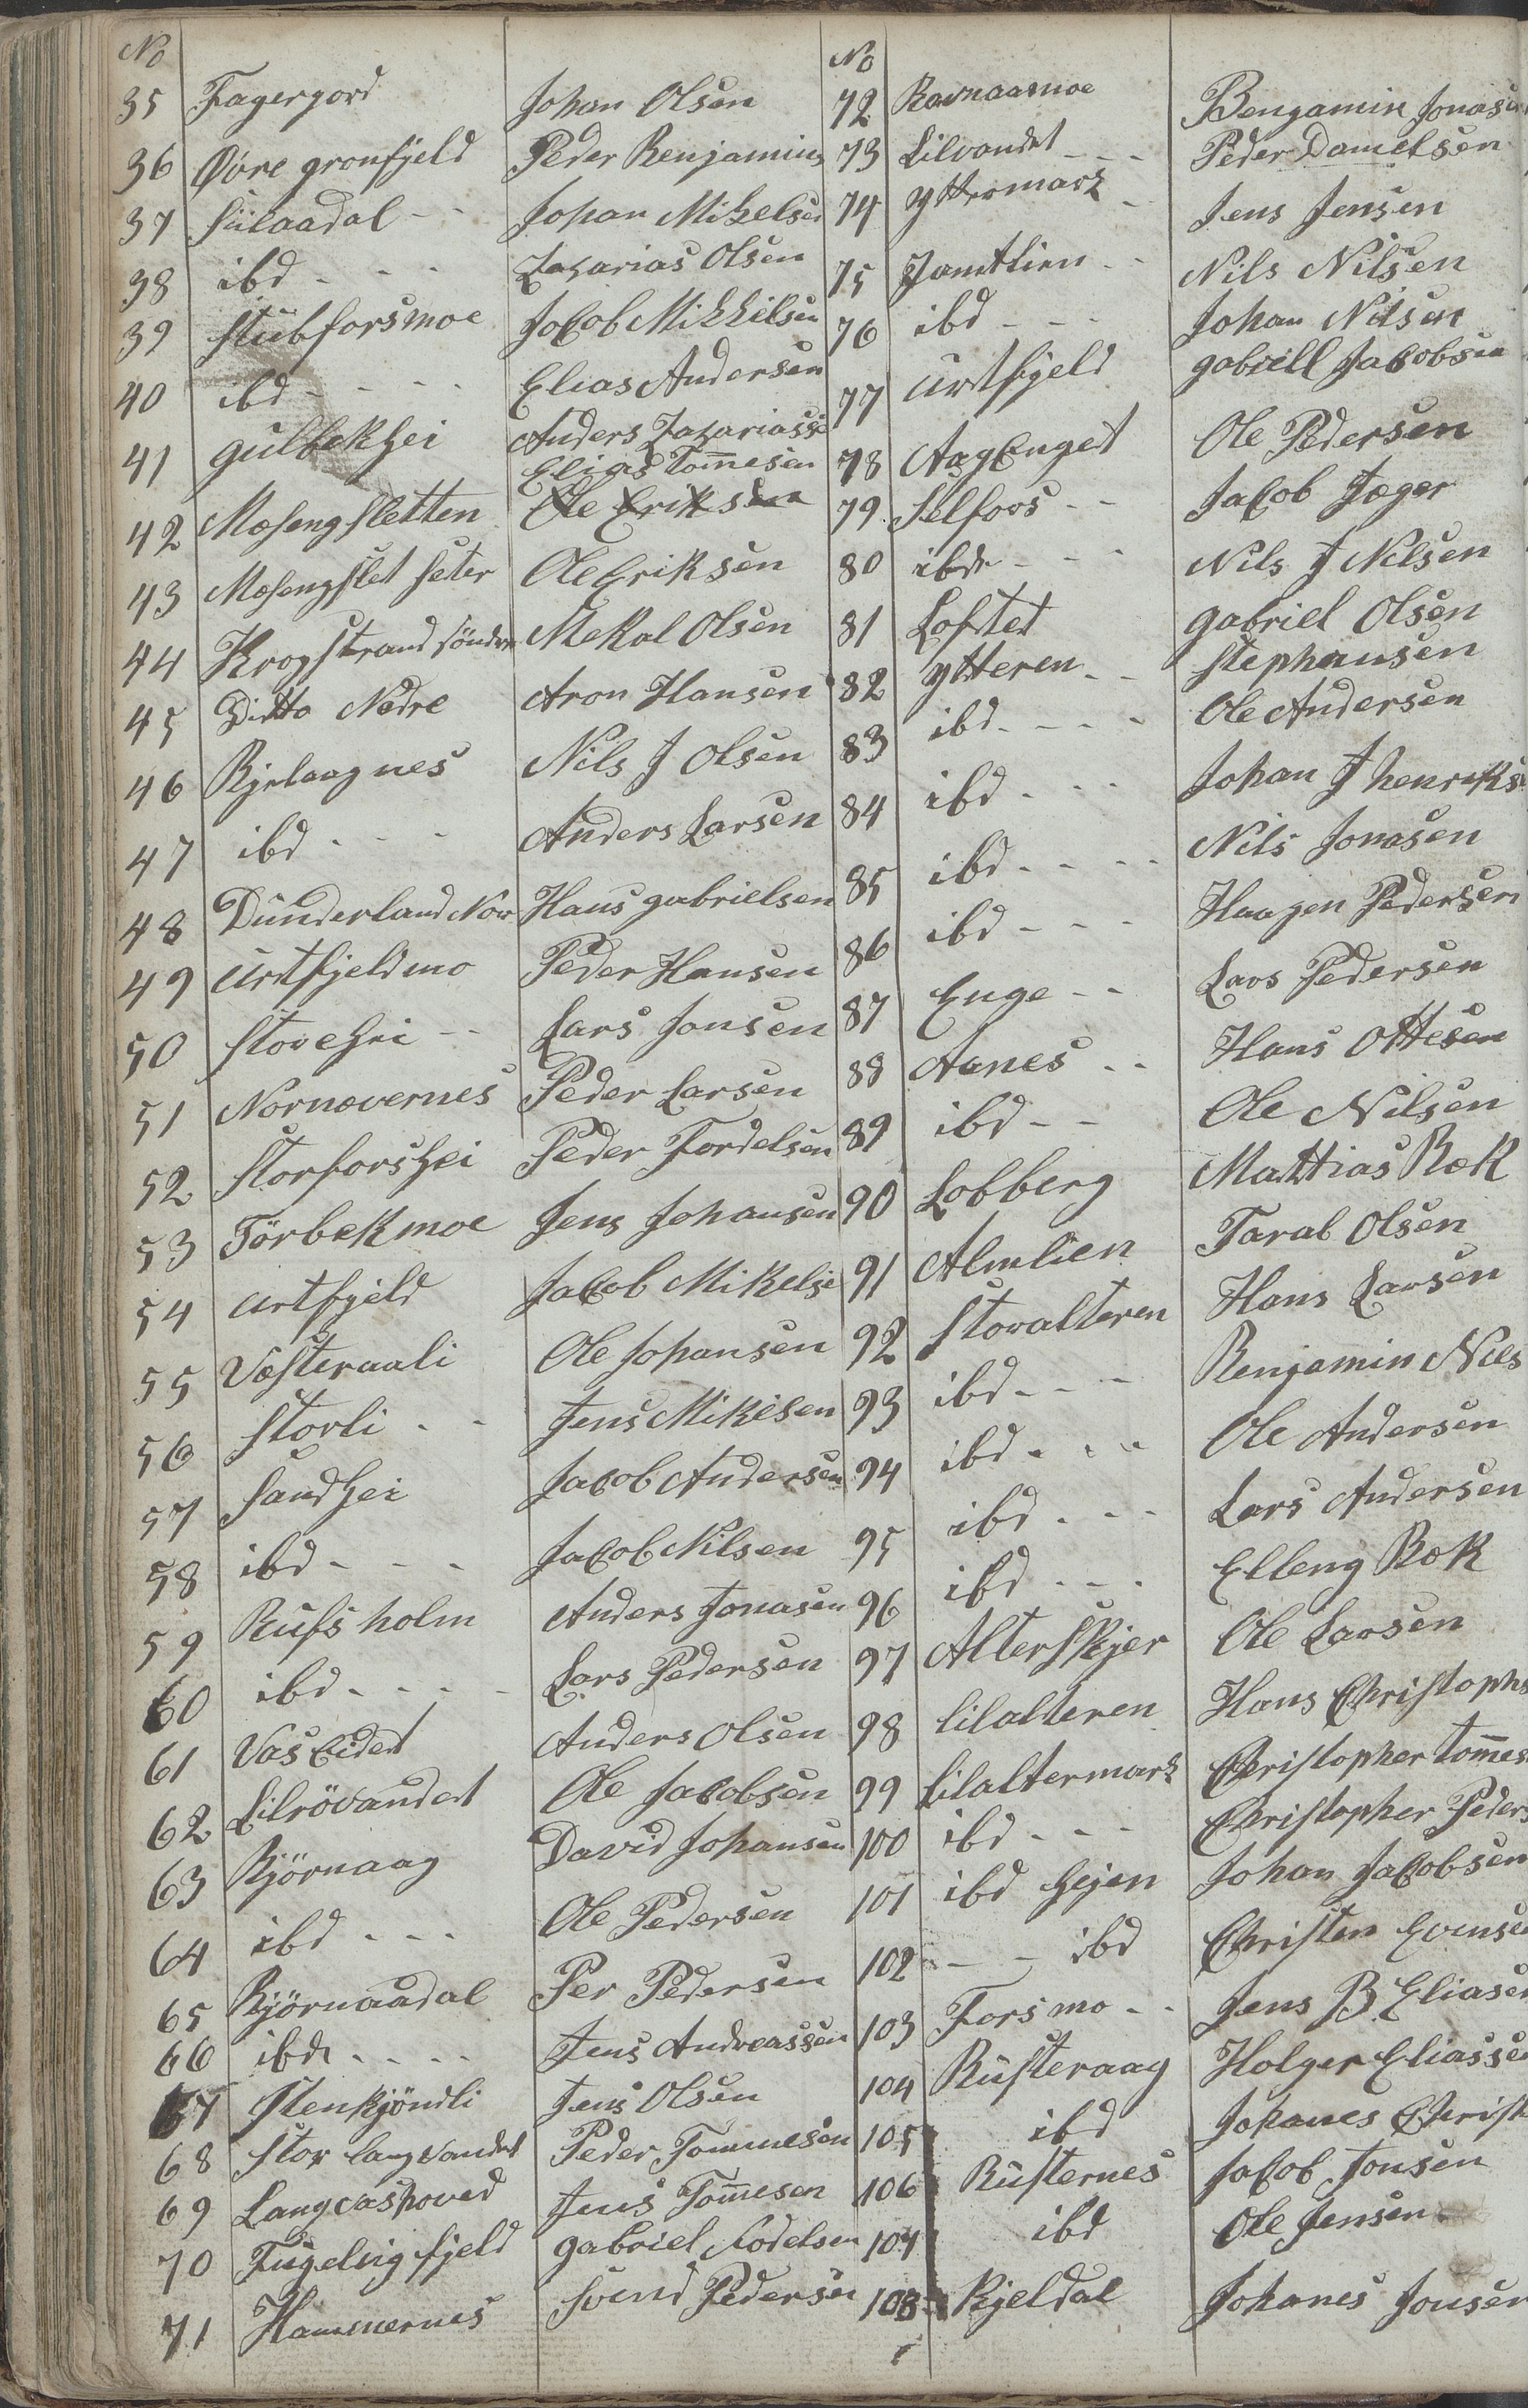 No
35 Fagerjord Johan Olsen
36 Øvre gronfjeld Peder Benjamins
37 Siilaadal - - Johan Mikelsen
38 ibd - - - Zakarias Olsen
39 Stubforsmoe Jacob Mikkelsen
40 ibd - - - - Elias Andersen
41 gulbekhei Anders Zakariasse
Elias Tom̄esen
42 Mosengsletten Ole Eriksen
43 Mosengslet seter Ole Eriksen
44 Krogstrand söndre Mekal Olsen
45 Ditto Nedre Aron Hansen
46 Bjelaagnes Nils J Olsen
47 ibd - - - Anders Larsen
48 Dunderland Nor Hans gabrielsen
49 urtfjeldmo Peder Hansen
50 Storehei - - Lars Jonsen
51 Nornævernes Peder Larsen
52 Storforshei Peder Fordelsen
53 Törbekmoe Jens Johansen
54 urtfjeld Jacob Mikelse
55 Vesteraali Ole Johansen
56 Storli - - Jens Mikelsen
57 Sandhei Jacob Andersen
58 ibd - - - Jacob Nilsen
59 Rufsholm Anders Jonasen
60 ibd - - - - Lars Pedersen
61 Vas Eidet Anders Olsen
62 Lilrövandet Ole Jacobsen
63 Björnaag David Johansen
64 ibd - - - Ole Pedersen
65 Björnaadal Per Pedersen
66 ibd - - - - Jens Andreassen
67 Stenkjöndli Jens Olsen
68 Stor langvandet Peder Tommesen
69 Langvashoved Jens Tom̄esen
70 Fugelvigfjeld gabriel Fodelsen
71 Hammernes Svend Pedersen
No
72 Ravnaamoe Bengamin Jonasen
73 Lilvandet - - - Peder Danielsen
74 yttermark - Jens Jensen
75 Jamtlien - - Nils Nilsen
76 ibd - - - Johan Nilsen
77 urtfjeld gabriell Jacobsen
78 Aag Enget Ole Pedersen
79 Selfoos - - Jacob Jæger
80 ibd - - - Nils J Nilsen
81 Loftet gabriel Olsen
82 ytteren - - Stephansen
83 ibd - - - - Ole Andersen
84 ibd - - - Johan J henriks
85 ibd - - - - Nils Jonasen
86 ibd - - - Haagen Pedersen
87 Enge - - Lars Pedersen
88 Aanes - - Hans Ottesen
89 ibd - - Ole Nilsen
90 Lobberg Mathias Bæk
91 Almlien Taral Olsen
92 Storalteren Hans Larsen
93 ibd - - - Benjamin Nils
94 ibd - - - Ole Andersen
95 ibd - - - Lars Andersen
96 ibd - - - Elleng Bæk
97 Alterskjer Ole Larsen
98 lilalteren Hans Christophs
99 lilaltermark Christopher Tom̄es
100 ibd - - - Christopher Peders
101 ibd hejen Johan Jacobsen
102 - - ibd Christen Evensen
103 Forsmo - - Jens B. Eliasen
104 Rusteraag Holger Eliassen
105 ibd Johanes Christ
106 Rusternes Jacob Jonsen
107 ibd Ole Jensen
108 Kjeldal Johanes Jonsen